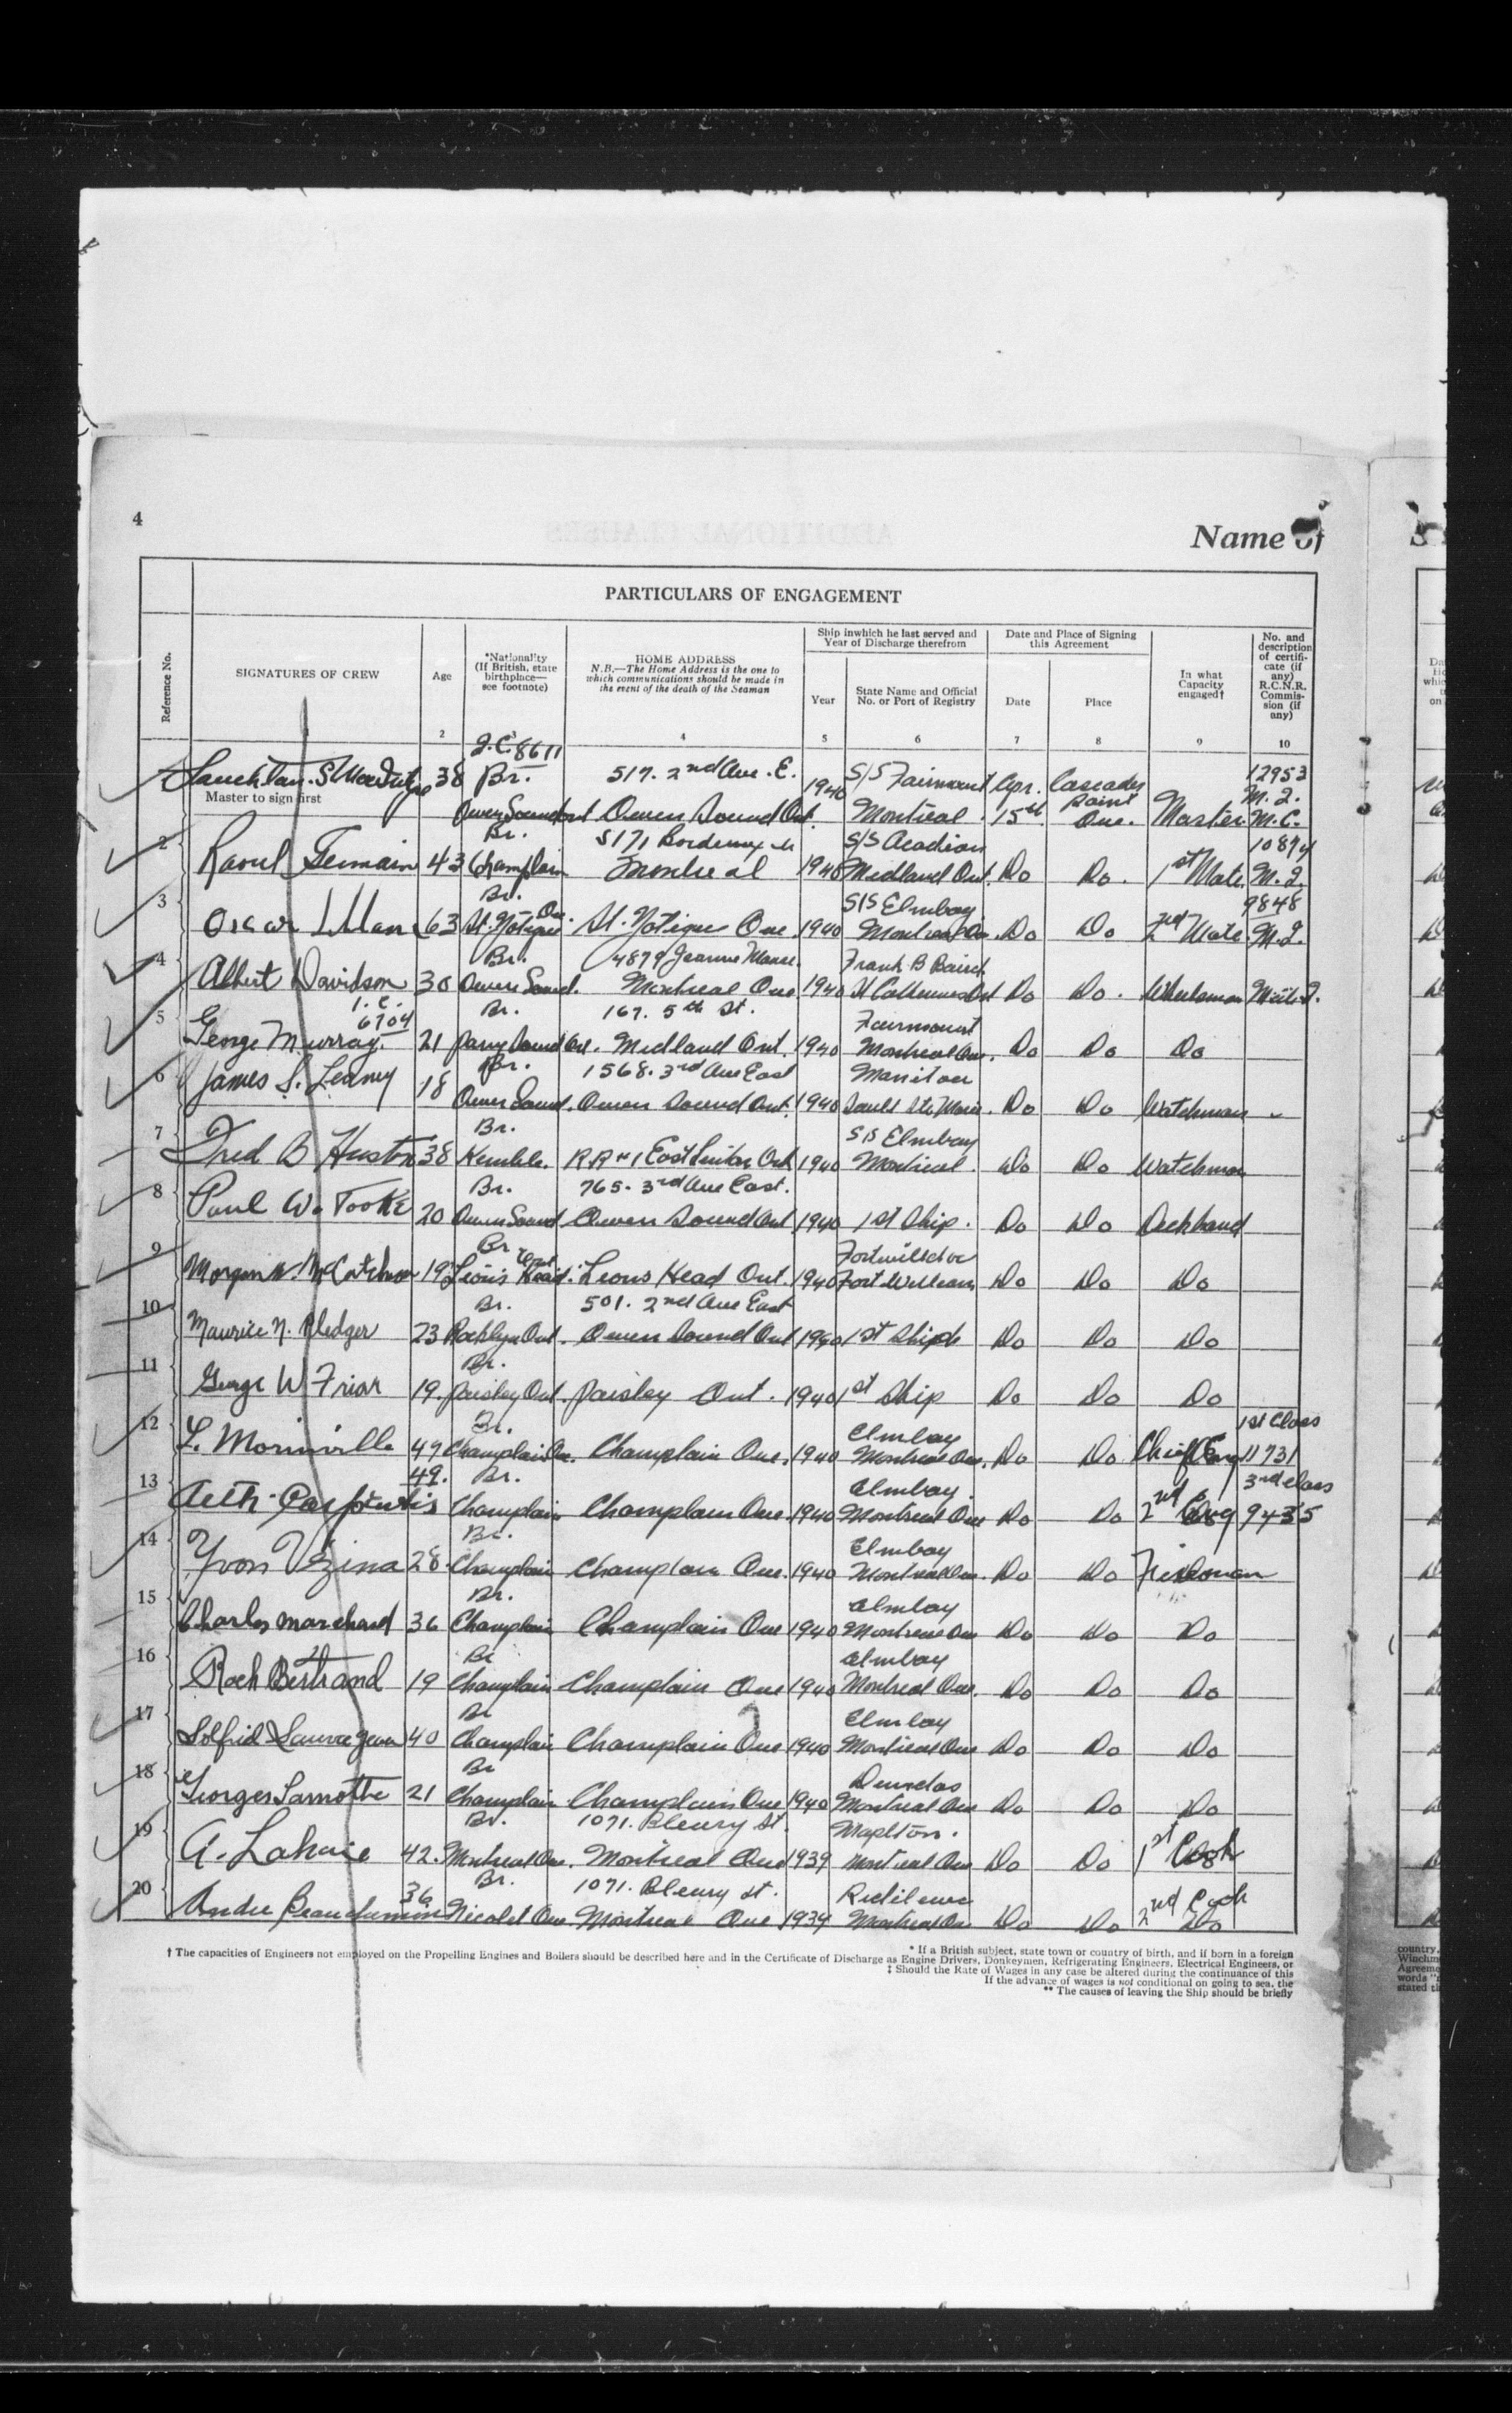 4
Name of
PARTICULARS OF ENGAGEMENT
Reference No.
SIGNATURES OF CREW
Age
*Nationality
(If British, state
birthplace—
see footnote)
HOME ADDRESS
N.B.—The Home Address is the one to
which communications should be made in
the event of the death of the Seaman
Ship inwhich he last served and
Year of Discharge therefrom
Year
State Name and Official
No. or Port of Registry
Date and Place of Signing
this Agreement
Date
Place
In what
Capacity
engaged†
No. and
description
of certifi-
cate (if
any)
R.C.N.R.
Commis-
sion (if
any)
2 4 5 6 7 8 9 10
8611
38 Br. 517. 2nd Ave. E. 1940 S/S Fairmount Apr. 12953
Master to sign first
Owen Sound Ont Owen Sound Ont. Montreal 15th Point Que. Master M.C.
2 Br. 5171 S/S Acadian 10874
Raoul Germain 43 Champlain Montreal 1940 Midland Ont. Do Do. 1st Mate.
3 Br. S/S Elmbay 9848
Oscar 63 Que. 1940 Montreal Do Do 2nd Mate
4 Br. 4879 Jeanne Mance. Frank B Baird
Albert Davidson 30 Owen Sound. Montreal Que 1940 Do Do. Wheelsman
5 6704 Br. 167. 5th St. Fairmount
George Murray. 21 Parry Sound Ont. Midland Ont. 1940 Montreal Que. Do Do Do
6 Br. 1568. 3rd Ave East Manitou
James S. 18 Owen Sound. Owen Sound Ont. 1940 Sault Ste Marie. Do Do Watchman
7 Br. S/S Elmbay
Fred B Huston 38 Kemble. R.R #1 Ont 1940 Montreal. Do Do Watchman
8 Br. 765. 3rd Ave East.
Paul W. Tooke 20 Owen Sound Owen Sound Ont 1940 1st Ship. Do Do Deckhand
9 Br
Morgan 19 Lions Head. Lions Head Ont. 1940 Fort William Do Do Do
10 Br. 501. 2nd Ave East
Maurice N. Pledger 23 Rocklyn Ont. Owen Sound Ont 1940 1st Ship Do Do Do
11 Br.
George W Friar 19. Paisley Ont. Paisley Ont. 1940 1st Ship Do Do Do
12 Br. Elmbay 1st Class
L. Morinville 47 Champlain Que. Champlain Que. 1940 Montreal Que. Do Do Chief Eng 11731
13 49. Br. Elmbay. 3rd class
Champlain Champlain Que. 1940 Montreal Que Do Do 2nd Eng 9435
14 Br. Elmbay
Yvon Vézina 28. Champlain Champlain Que. 1940 Montreal Que. Do Do Fireman
15 Br. Elmbay
Charles Marchand 36 Champlain Champlain Que 1940 Montreal Que Do Do Do
16 Br Elmbay
Roch Bertrand 19 Champlain Champlain Que 1940 Montreal Que. Do Do Do
17 Br Elmbay
40 Champlain Champlain Que 1940 Montreal Que Do Do Do
18 Br Dundas
Georges Lamothe 21 Champlain Champlain Que 1940 Montreal Que Do Do Do
19 Br. 1071. Bleury St. Maplton.
A. Lahaie 42. Montreal Que. Montreal Que 1939 Montreal Que Do Do 1st Cook
20 36 Br. 1071. Bleury St.
Andre Beauchemin Nicolet Que Montreal Que 1939 Montreal Do Do 2nd Cook Do
† The capacities of Engineers not employed on the Propelling Engines and Boilers should be described here and in the Certificate of Discharge as Engine Drivers, Donkeymen, Refrigerating Engineers, Electrical Engineers, or
* If a British subject, state town or country of birth, and if born in a foreign
‡ Should the Rate of Wages in any case be altered during the continuance of this
If the advance of wages is not conditional on going to sea, the
** The causes of leaving the Ship should be briefly
country.
Winchm
Agreeme
stated th